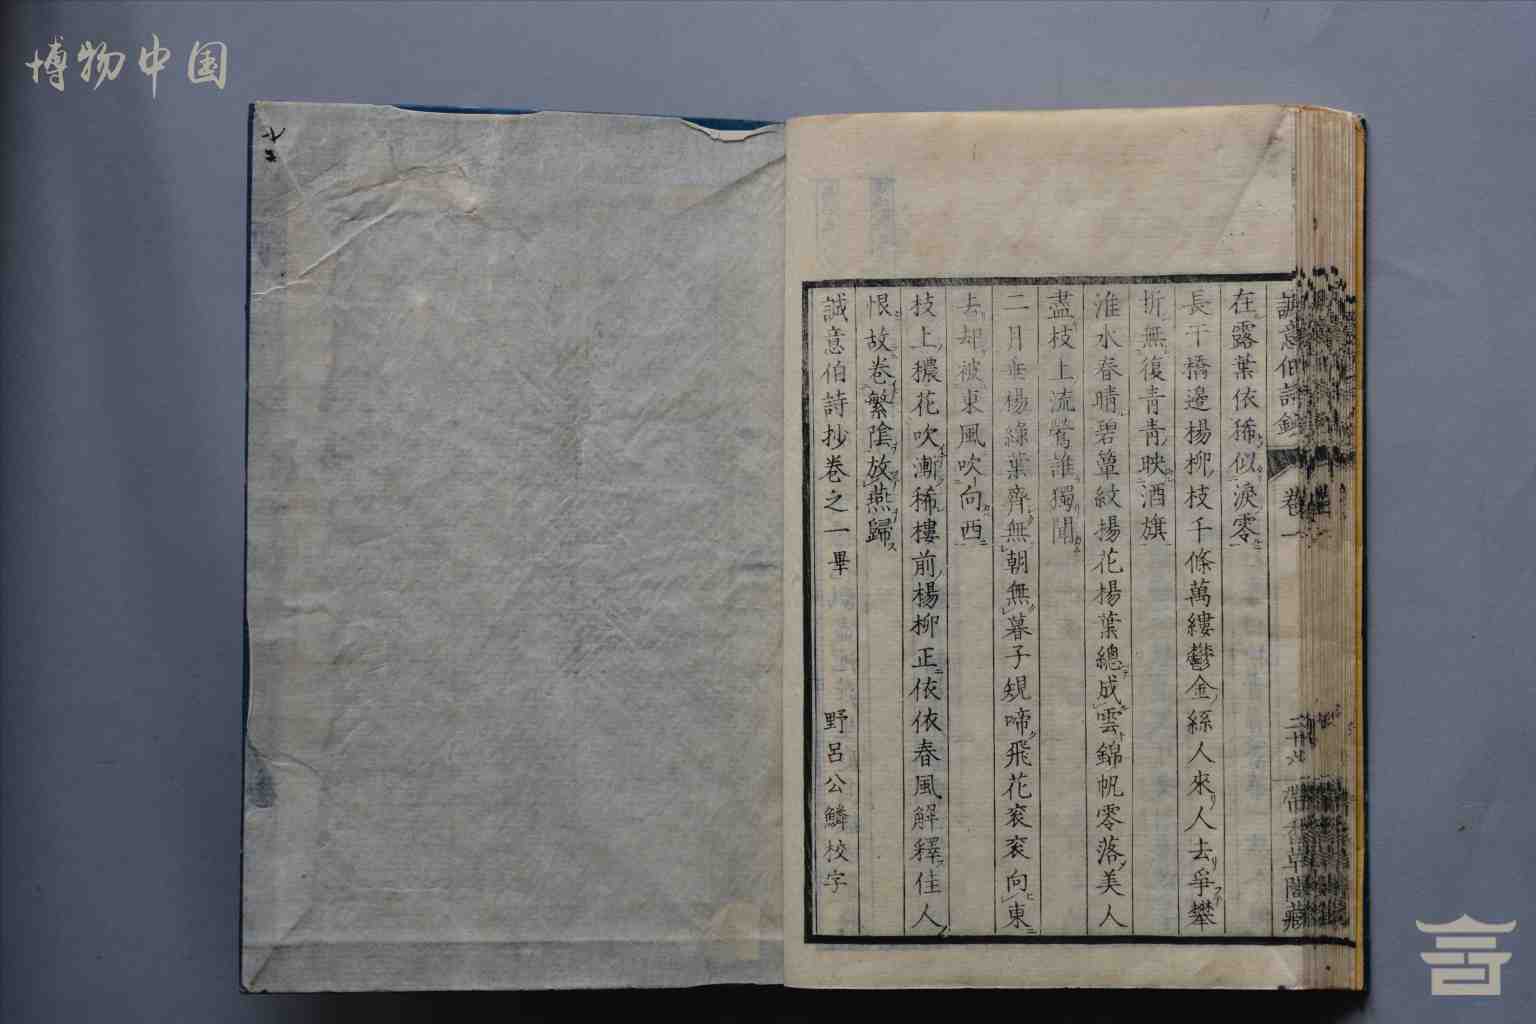 博物中国
誠意伯詩鈔 卷一
在露葉依稀似淚零
長干橋邊楊柳枝千條萬縷鬱金絲人來人去爭攀
折無復青青映酒旗
淮水春晴碧簟紋揚花楊葉總成雲錦帆零落美人
盡枝上流鶯誰獨聞
二月垂楊綠葉齊無朝無暮子規啼飛花衮衮向東
去却被東風吹向西
枝上穠花吹漸稀樓前楊柳正依依春風解釋佳人
恨故卷繁陰放燕歸
誠意伯詩抄卷之一畢 野呂公鱗校字